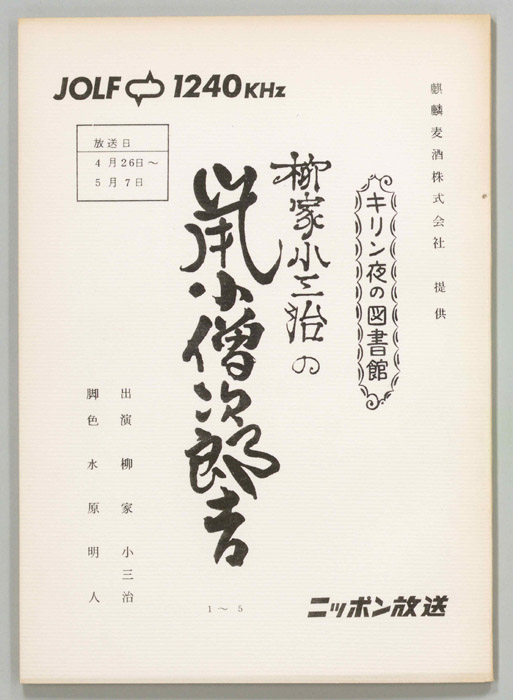 JOLF 1240KHz
放送日
4月26日～
5月7日
麒麟麦酒株式会社 提供
キリン夜の図書館
柳家小三治の
鼠小僧次郎吉
出演 柳家小三治
脚色 水原明人
1～5
ニッポン放送